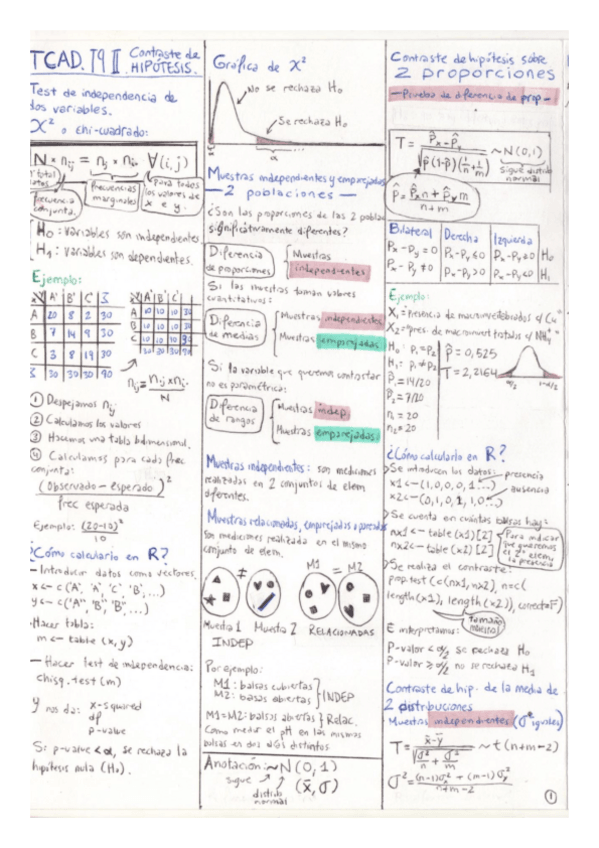 TCAD. T9 II Contraste de HIPÓTESIS.
Test de independencia de
dos variables.
X² o chi-cuadrado:
N * nij = nj * ni. ∀(i,j)
frecuencia conjunta.
frecuencias marginales
para todos los valores de x e y.
H0: Variables son independientes
H1: Variables son dependientes.
Ejemplo:
A' B' C' Σ
A 20 8 2 30
B 7 14 9 30
C 3 8 19 30
Σ 30 30 30 90
A' B' C'
A 10 10 10 30
B 10 10 10 30
C 10 10 10 30
30 30 30 90
nij = ni. xn.j / N
① Despejamos nij
② Calculamos los valores
③ Hacemos una tabla bidimensional.
④ Calculamos para cada frec
conjunta:
(Observado - esperado)²
frec esperada
Ejemplo: (20-10)²
10
¿Cómo calcularlo en R?
- Introducir datos como vectores.
x <- c('A', 'A', 'C', 'B', ...)
y <- c("A'", "B'", "B'", ...)
- Hacer tabla:
m <- table (x, y)
- Hacer test de independencia:
chisq.test (m)
Y nos da: x-squared
df
p-value
Si p-value < α, se rechaza la
hipótesis nula (H0).
Gráfica de X²
No se rechaza H0
Se rechaza H0
α
Muestras independientes y emparejadas
— 2 poblaciones —
¿Son las proporciones de las 2 pobla
significativamente diferentes?
Diferencia de proporciones
Muestras independientes
Si las muestras toman valores
cuantitativos:
Diferencia de medias
Muestras independientes
Muestras emparejadas.
Si la variable que queremos contrastar
no es paramétrica:
Diferencia de rangos
Muestras indep.
Muestras emparejadas.
Muestras independientes: son mediciones
realizadas en 2 conjuntos de elem
diferentes.
Muestras relacionadas, emparejadas o pareadas
son mediciones realizada en el mismo
conjunto de elem.
≠
M1 = M2
Muestra 1 Muestra 2 RELACIONADAS
INDEP
Por ejemplo:
M1: balsas cubiertas
M2: balsas abiertas } INDEP
M1=M2: balsas abiertas } Relac.
Como medir el pH en las mismas
balsas en dos años distintos
Anotación: ~ N (0, 1)
sigue
distrib normal
(x̄, σ)
Contraste de hipótesis sobre
2 proporciones
— Prueba de diferencia de prop —
T = P̂x - P̂y / √p̂ (1-p̂) (1/n + 1/m) ~ N (0,1)
sigue distrib normal
p̂ = P̂x n + P̂y m / n+m
Bilateral Derecha Izquierda
Px - Py = 0 Px - Py ≤ 0 Px - Py ≥ 0 H0
Px - Py ≠ 0 Px - Py > 0 Px - Py < 0 H1
Ejemplo:
H0: P1 = P2
H1: P1 ≠ P2
P̂ = 0,525
T = 2,2164
P̂1 = 14/20
P̂2 = 7/20
n1 = 20
n2 = 20
¿Cómo calcularlo en R?
Se introducen los datos:
x1 <- (1,0,0,0,1...)
x2 <- (0,1,0,1,1,0...)
presencia
ausencia
Se cuenta en cuántas balsas hay:
nx1 <- table (x1) [2]
nx2 <- table (x2) [2]
Para indicar que queremos el 2º elem, la presencia
Se realiza el contraste:
prop.test (c(nx1, nx2), n=c(
length(x1), length (x2)), correct=F)
tamaño muestral
E interpretamos:
P-valor < α/2 se rechaza H0
P-valor ≥ α/2 no se rechaza H1
Contraste de hip. de la media de
2 distribuciones
Muestras independientes (σ² iguales)
T = x̄ - ȳ / √σ²/n + σ²/m ~ t (n+m-2)
σ² = (n-1)σx² + (m-1)σy² / n+m-2
①